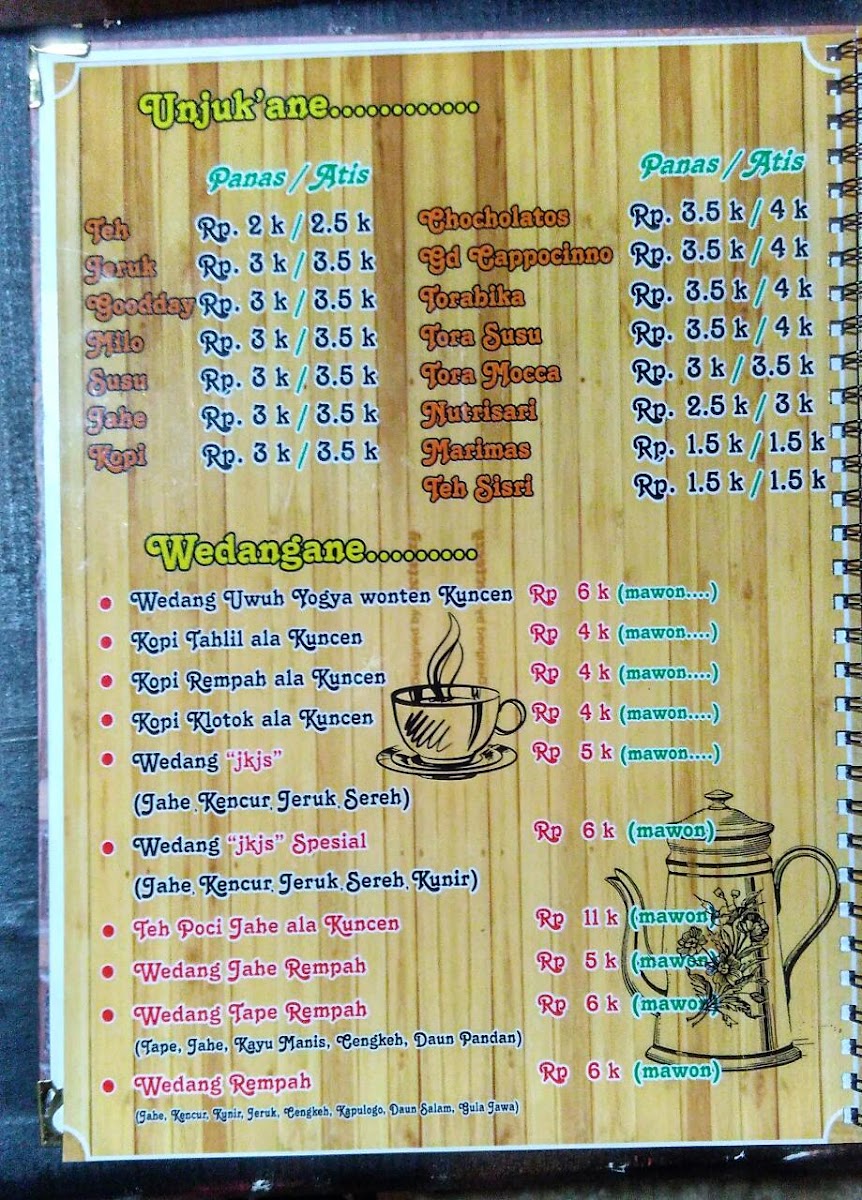 Unjuk'ane............
Panas / Atis
Teh Rp. 2 k / 2.5 k
Jeruk Rp. 3 k / 3.5 k
Goodday Rp. 3 k / 3.5 k
Milo Rp. 3 k / 3.5 k
Susu Rp. 3 k / 3.5 k
Jahe Rp. 3 k / 3.5 k
Kopi Rp. 3 k / 3.5 k
Panas / Atis
Chocholatos Rp. 3.5 k / 4 k
Gd Cappocinno Rp. 3.5 k / 4 k
Torabika Rp. 3.5 k / 4 k
Tora Susu Rp. 3.5 k / 4 k
Tora Mocca Rp. 3 k / 3.5 k
Nutrisari Rp. 2.5 k / 3 k
Marimas Rp. 1.5 k / 1.5 k
Teh Sisri Rp. 1.5 k / 1.5 k
Wedangane.........
• Wedang Uwuh Yogya wonten Kuncen Rp 6 k (mawon....)
• Kopi Tahlil ala Kuncen Rp 4 k (mawon....)
• Kopi Rempah ala Kuncen Rp 4 k (mawon....)
• Kopi Klotok ala Kuncen Rp 4 k (mawon....)
• Wedang "jkjs" Rp 5 k (mawon....)
(Jahe, Kencur, Jeruk, Sereh)
• Wedang "jkjs" Spesial Rp 6 k (mawon)
(Jahe, Kencur, Jeruk, Sereh, Kunir)
• Teh Poci Jahe ala Kuncen Rp 11 k (mawon)
• Wedang Jahe Rempah Rp 5 k (mawon)
• Wedang Tape Rempah Rp 6 k (mawon)
(Tape, Jahe, Kayu Manis, Cengkeh, Daun Pandan)
• Wedang Rempah Rp 6 k (mawon)
(Jahe, Kencur, Kunir, Jeruk, Cengkeh, Kapulogo, Daun Salam, Gula Jawa)